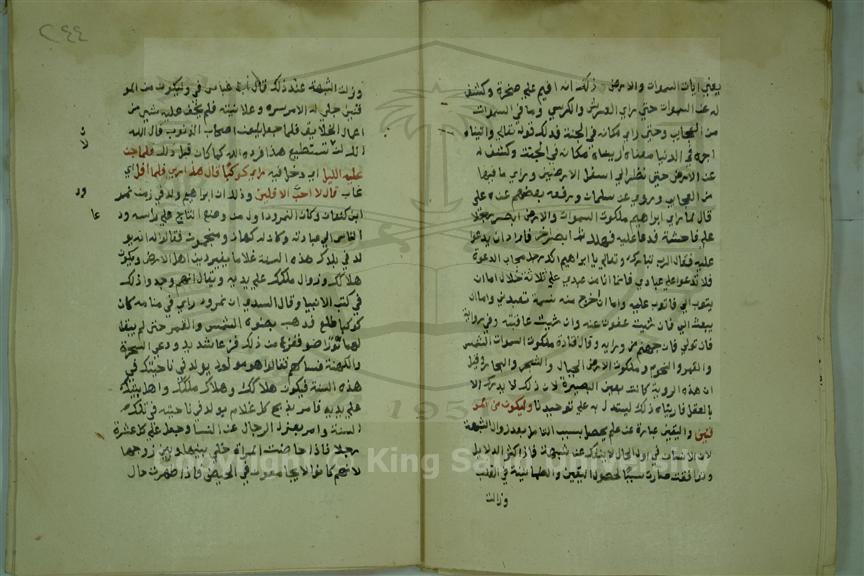 يعني ايات السموات والارض ذلك انه اقيم على صخرة وكشف
له عن السموات حتى راي العرش والكرسي وما في السموات
من العجايب وحتى راي مكانه في الجنة فذلك قوله تعالى واتيناه
اجره في الدنيا معناه اريناه مكانه في الجنة وكشف له
عن الارض حتى نظر الي اسفل الارضين وراي ما فيها
من العجايب وروي عن سلمان ورفعه بعضهم عن علي
قال لما راي ابراهيم ملكوت السموات والارض ابصر رجلا
على فاحشة فدعا عليه فهلك ثم ابصر اخر فاراد ان يدعوا
عليه فقال الرب تبارك وتعالى يا ابراهيم انك رجل مجاب الدعوة
فلا تدعوا على عبادي فانما انا من عبدي على ثلاثة خلال اما ان
يتوب الي فاتوب عليه واما ان اخرج منه نسمة تعبدني واما ان
يبعث الي فان شيت عفوت عنه وان شيت عاقبته وفي رواية
فان تولي فان جهنم من ورايه وقال قتادة ملكوت السموات الشمس
والقمر والنجوم وملكوت الارض الجبال والشجر والبحار وقيل
ان هذه الروية كانت بعين البصيرة لان ذلك لا يدرك الا
بالعقل فاريناه ذلك ليستدل به على توحيدنا وليكون من المو
قنين واليقين عبارة عن علم يحصل بسبب التامل بعد زوال الشبهة
لان الانسان في اول الحال لا ينفك عن شبهة فاذا كثر الدلايل
وتوافقت صارت سببا لحصول اليقين والطمانينة في القلب
وزالت
٢٤٤
وزالت الشبهة عند ذلك قال ابن عباس في وليكون من المو
قنين جلي له الامر سره وعلانيته فلم يخف عليه شي من
اعمال الخلايق فلما جعل يلعن اصحاب الذنوب قال الله
انك لن تستطيع هذا فرده الله كما كان قبل ذلك فلما جن
عليه الليل اي دخل فيه راي كوكبا قال هذا ربي فلما افل اي
غاب قال لا احب الافلين وذلك ان ابراهيم ولد في زمن نمرود
ابن كنعان وكان النمرود اول من وضع التاج على راسه ود
الناس الي عبادته وكان له كهان ومنجمون فقالوا له انه يو
لد في بلدك هذه السنة غلاما يغير دين اهل الارض ويكون
هلاكك وزوال ملكك على يديه ويقال انهم وجدوا ذلك
في كتب الانبيا وقال السدي ان نمرود راي في منامه كان
كوكبا طلع فذهب بضوء الشمس والقمر حتى لم يبقا
لهما ضو ففزع من ذلك فزعا شديد ودعي السحرة
والكهنة فسالهم فقالوا هو مولود يولد في ناحيتك في
هذه السنة فيكون هلاكك وهلاك ملكك واهل بيتك
على يديه فامر بذبح كل غلام يولد في ناحيته في تلك
السنة وامر بعزل الرجال عن النسا وجعل على كل عشرة
رجلا فاذا حاضت المراة خلي بينها وبين زوجها
لانهم كانوا لا يجامعون في الحيض فاذا طهرت حال